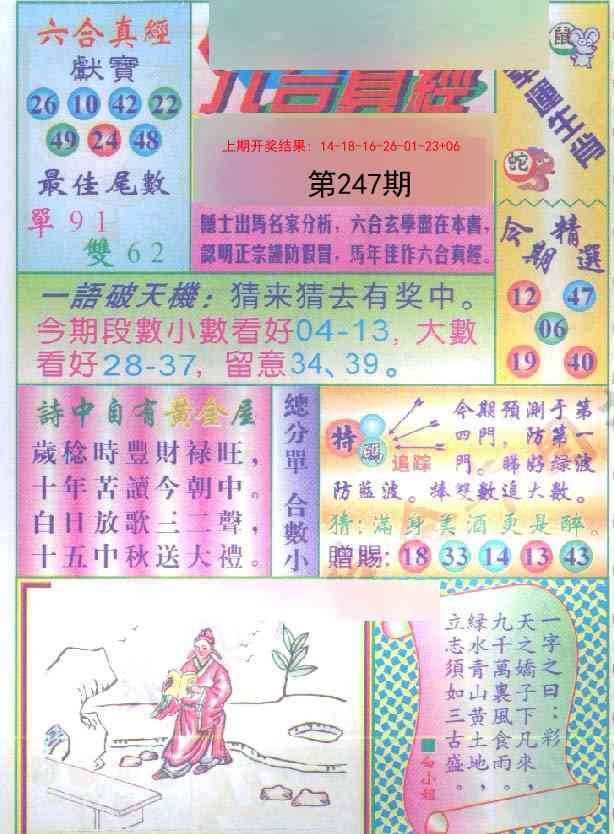 六合真經
獻寶
26 10 42 22
49 24 48
最佳尾數
單 9 1
雙 6 2
六合真經
上期开奖结果：14-18-16-26-01-23+06
第247期
隱士出馬名家分析，六合玄學盡在本書，
認明正宗謹防假冒，馬年佳作六合真經。
鼠
幸運生肖
蛇
今期精選
12 47
06
19 40
一語破天機：猜来猜去有奖中。
今期段數小數看好04-13，大數
看好28-37，留意34、39。
詩中自有黃金屋
歲稔時豐財禄旺，
十年苦讀今朝中。
白日放歌三二聲，
十五中秋送大禮。
總分單 合數小
特碼
追踪
今期預測于第
四門，防第一
門。睇好绿波
防藍波。捧雙數追大數。
猜：滿身美酒更是醉。
贈賜：18 33 14 13 43
一字之曰：彩
天之嬌子下凡來，
九千萬裏風食雨，
緑水青山黄土地，
立志須如三古盛。
白小姐